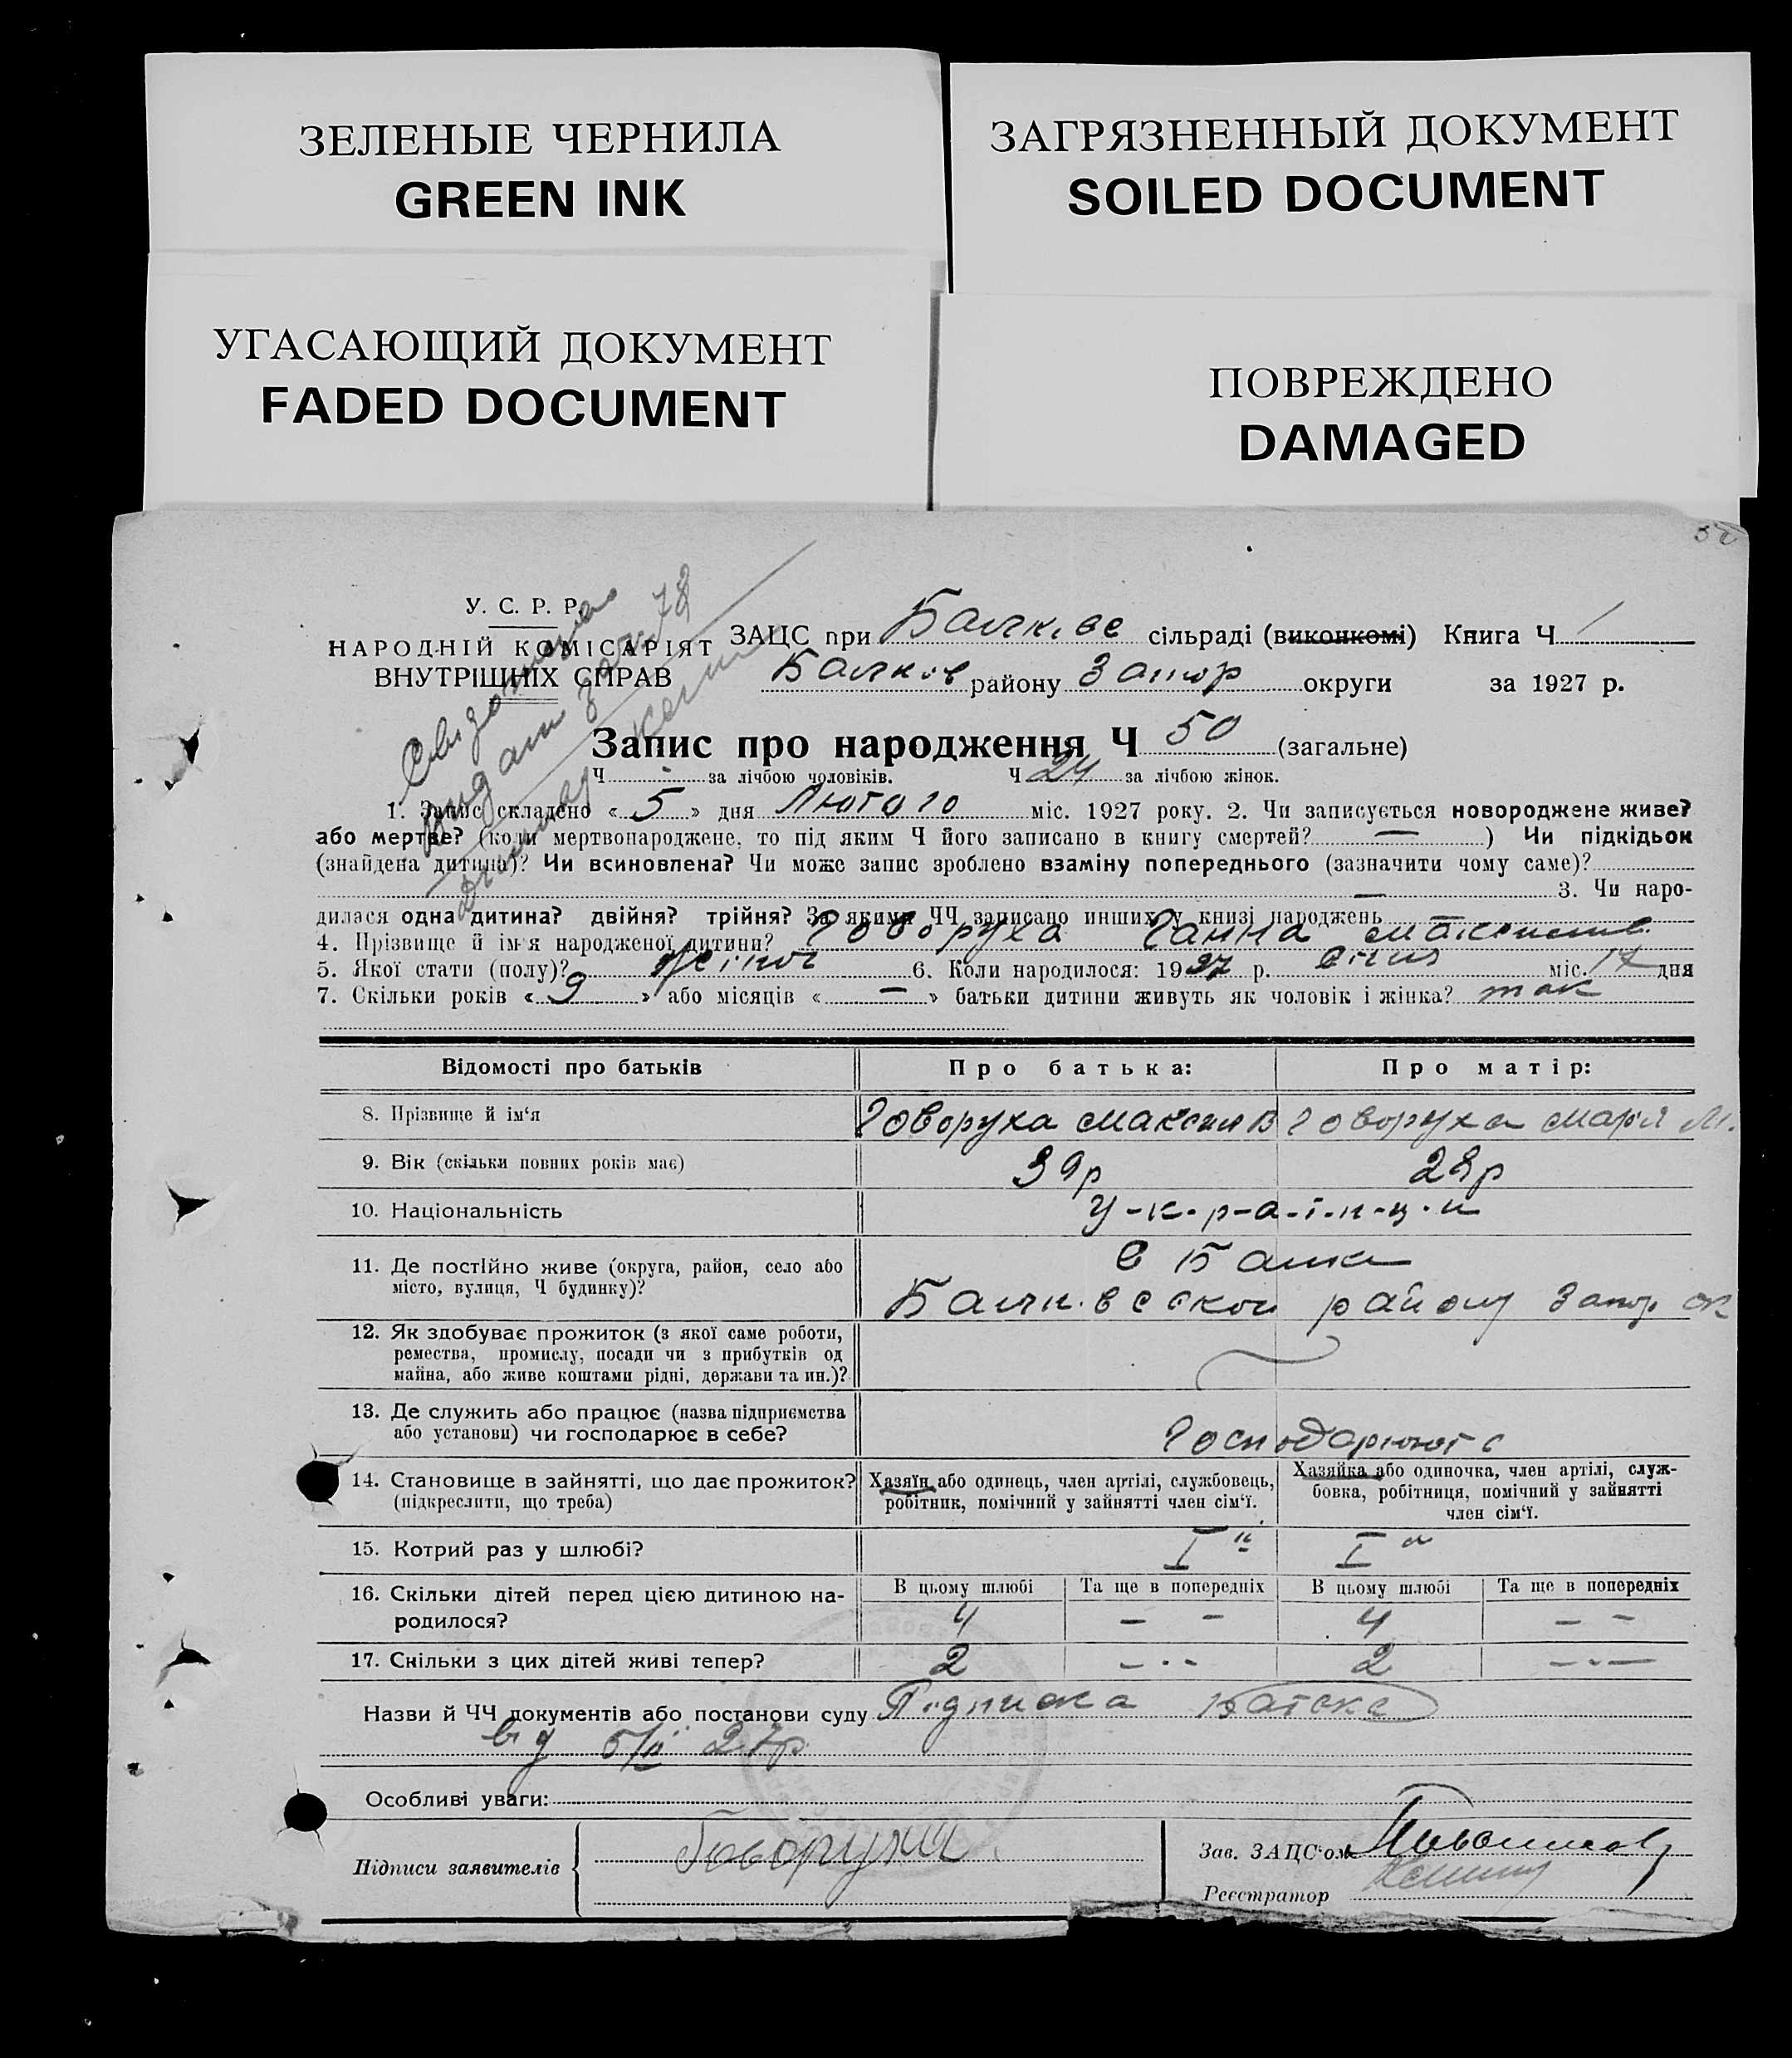 ЗЕЛЕНЫЕ ЧЕРНИЛА
GREEN INK
ЗАГРЯЗНЕННЫЙ ДОКУМЕНТ
SOILED DOCUMENT
УГАСАЮЩИЙ ДОКУМЕНТ
FADED DOCUMENT
ПОВРЕЖДЕНО
DAMAGED
У. С. Р. Р.
НАРОДНІЙ КОМІСАРІЯТ
ВНУТРІШНІХ СПРАВ
ЗАЦС при сільраді (виконкомі) Книга Ч 1
Балков району Запор округи за 1927 р.
Запис про народження Ч 50 (загальне)
Ч за лічбою чоловіків. Ч 24 за лічбою жінок.
1. Запис складено « 5 » дня Лютого міс. 1927 року. 2. Чи записується новороджене живе?
або мертве? (коли мертвонароджене, то під яким Ч його записано в книгу смертей? — ) Чи підкідьок
(знайдена дитина)? Чи всиновлена? Чи може запис зроблено взаміну попереднього (зазначити чому саме)?
— 3. Чи наро-
дилася одна дитина? двійня? трійня? За якими ЧЧ записано инших у книзі народжень
4. Прізвище й ім'я народженої дитини? Говоруха Ганна
5. Якої стати (полу)? жіноч 6. Коли народилося: 1927 р. Січня міс. 17 дня
7. Скільки років « 9 » або місяців « — » батьки дитини живуть як чоловік і жінка? так
Відомості про батьків Про батька: Про матір:
8. Прізвище й ім'я Говоруха Максим В Говоруха Марія М.
9. Вік (скільки повних років має) 39р 28р
10. Національність У-к-р-а-ї-н-ц-и
11. Де постійно живе (округа, район, село або
місто, вулиця, Ч будинку)?
С Балка
району Запор ок
12. Як здобуває прожиток (з якої саме роботи,
ремества, промислу, посади чи з прибутків од
майна, або живе коштами рідні, держави та ин.)?
13. Де служить або працює (назва підприємства
або установи) чи господарює в себе?
14. Становище в зайнятті, що дає прожиток?
(підкреслити, що треба)
Хазяїн або одинець, член артілі, службовець,
робітник, помічний у зайнятті член сім'ї.
Хазяйка або одиночка, член артілі, служ-
бовка, робітниця, помічний у зайнятті
член сім'ї.
15. Котрий раз у шлюбі? І й І й
16. Скільки дітей перед цією дитиною на-
родилося?
В цьому шлюбі Та ще в попередніх В цьому шлюбі Та ще в попередніх
4 — — 4 — —
17. Скільки з цих дітей живі тепер? 2 — 2 —
Назви й ЧЧ документів або постанови суду Підписка батька
від 5/II 27р
Особливі уваги:
Підписи заявителів Говоруха
Зав. ЗАЦС'ом
Реєстратор